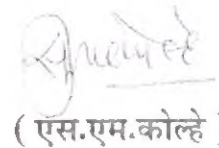 ( एस.एम.कोल्हे )